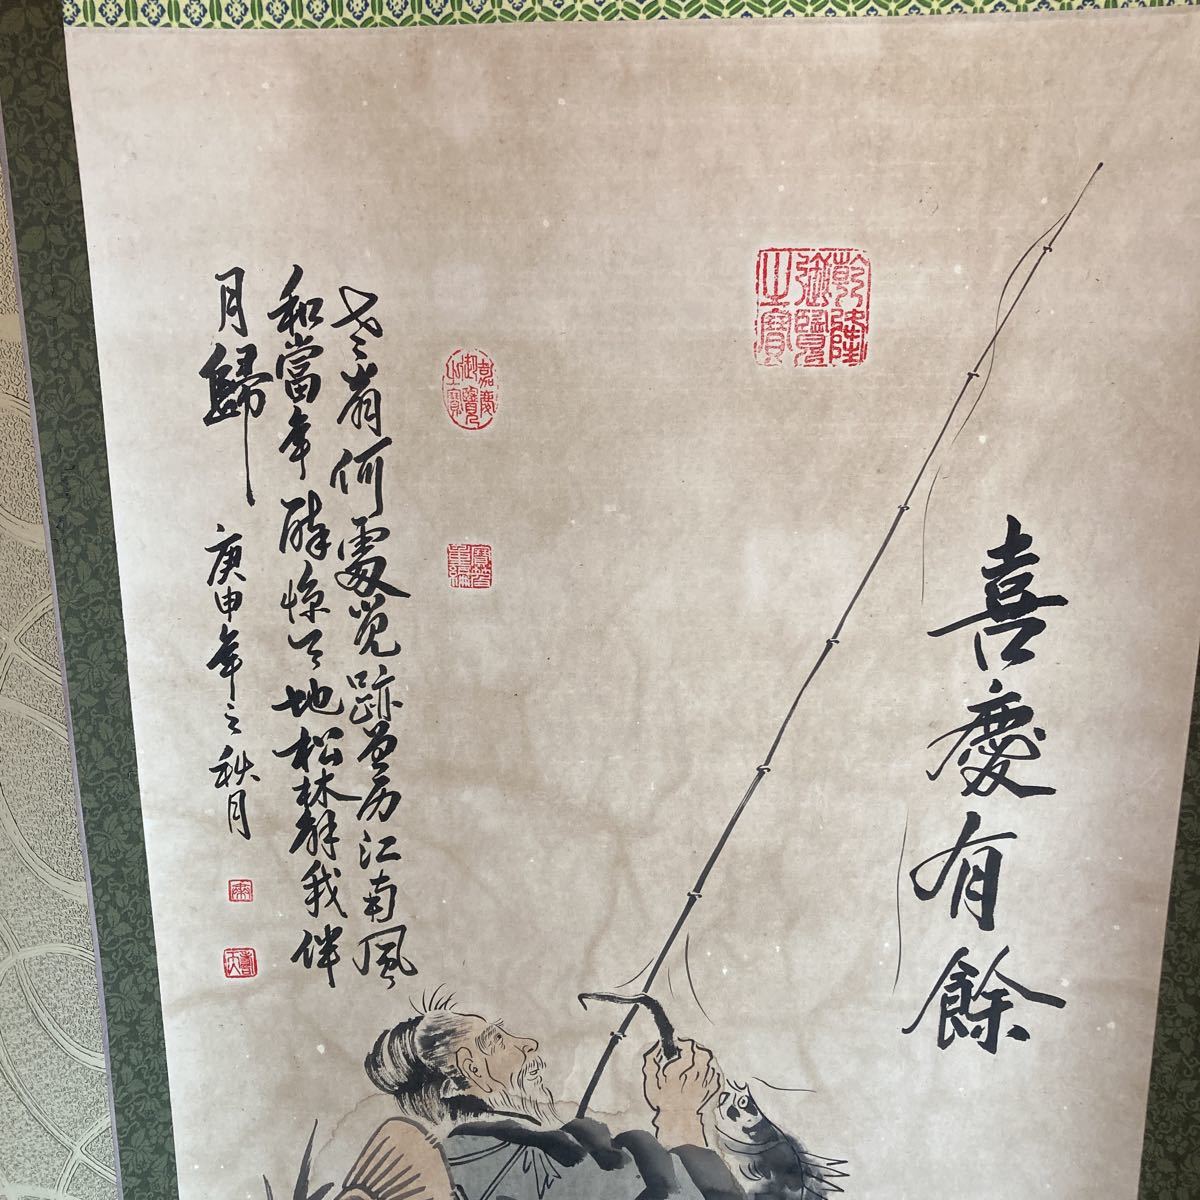 喜慶有餘
乾隆御覽之寶
嘉慶御覽之寶
寶笈重編
老翁何處覓跡曾历江南風
和當年醉惊天地松林我伴
月歸
庚申年之秋月